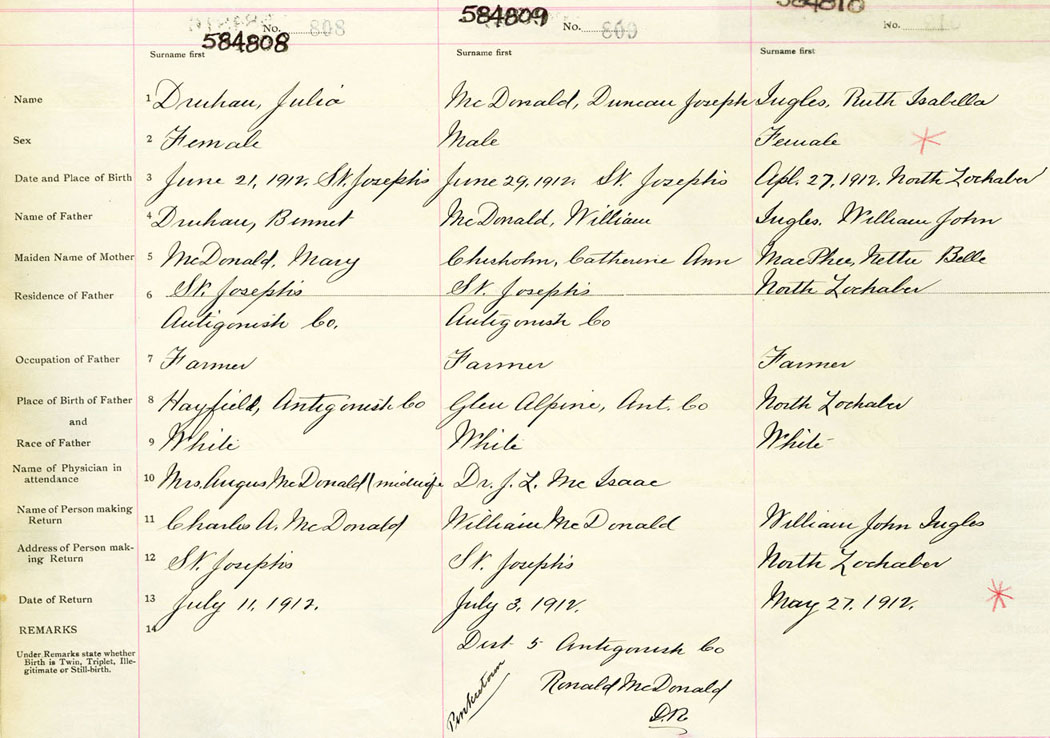 584809
584810
No. 808
No. 809
No. 810
584808
Surname first
Surname first
Surname first
Name 1 Druhan, Julia McDonald, Duncan Joseph Ingles, Ruth Isabella
Sex 2 Female Male Female
Date and Place of Birth 3 June 21, 1912. St. Josephs June 29, 1912. St. Josephs Apl. 27, 1912. North Lochaber
Name of Father 4 Druhan, Bennet McDonald, William Ingles, William John
Maiden Name of Mother 5 McDonald, Mary Chisholm, Catherine Ann MacPhee, Nettie Belle
Residence of Father 6 St. Josephs St. Josephs North Lochaber
Antigonish Co. Antigonish Co
Occupation of Father 7 Farmer Farmer Farmer
Place of Birth of Father 8 Hayfield, Antigonish Co Glen Alpine, Ant. Co North Lochaber
and
Race of Father 9 White White White
Name of Physician in
attendance 10 Mrs. Angus McDonald (midwife Dr. J. L. McIsaac
Name of Person making
Return 11 Charles A. McDonald William McDonald William John Ingles
Address of Person mak-
ing Return 12 St. Josephs St. Josephs North Lochaber
Date of Return 13 July 11, 1912. July 3, 1912. May 27, 1912.
REMARKS 14
Under Remarks state whether
Birth is Twin, Triplet, Ille-
gitimate or Still-birth.
Dist 5 Antigonish Co
Ronald McDonald
D.R